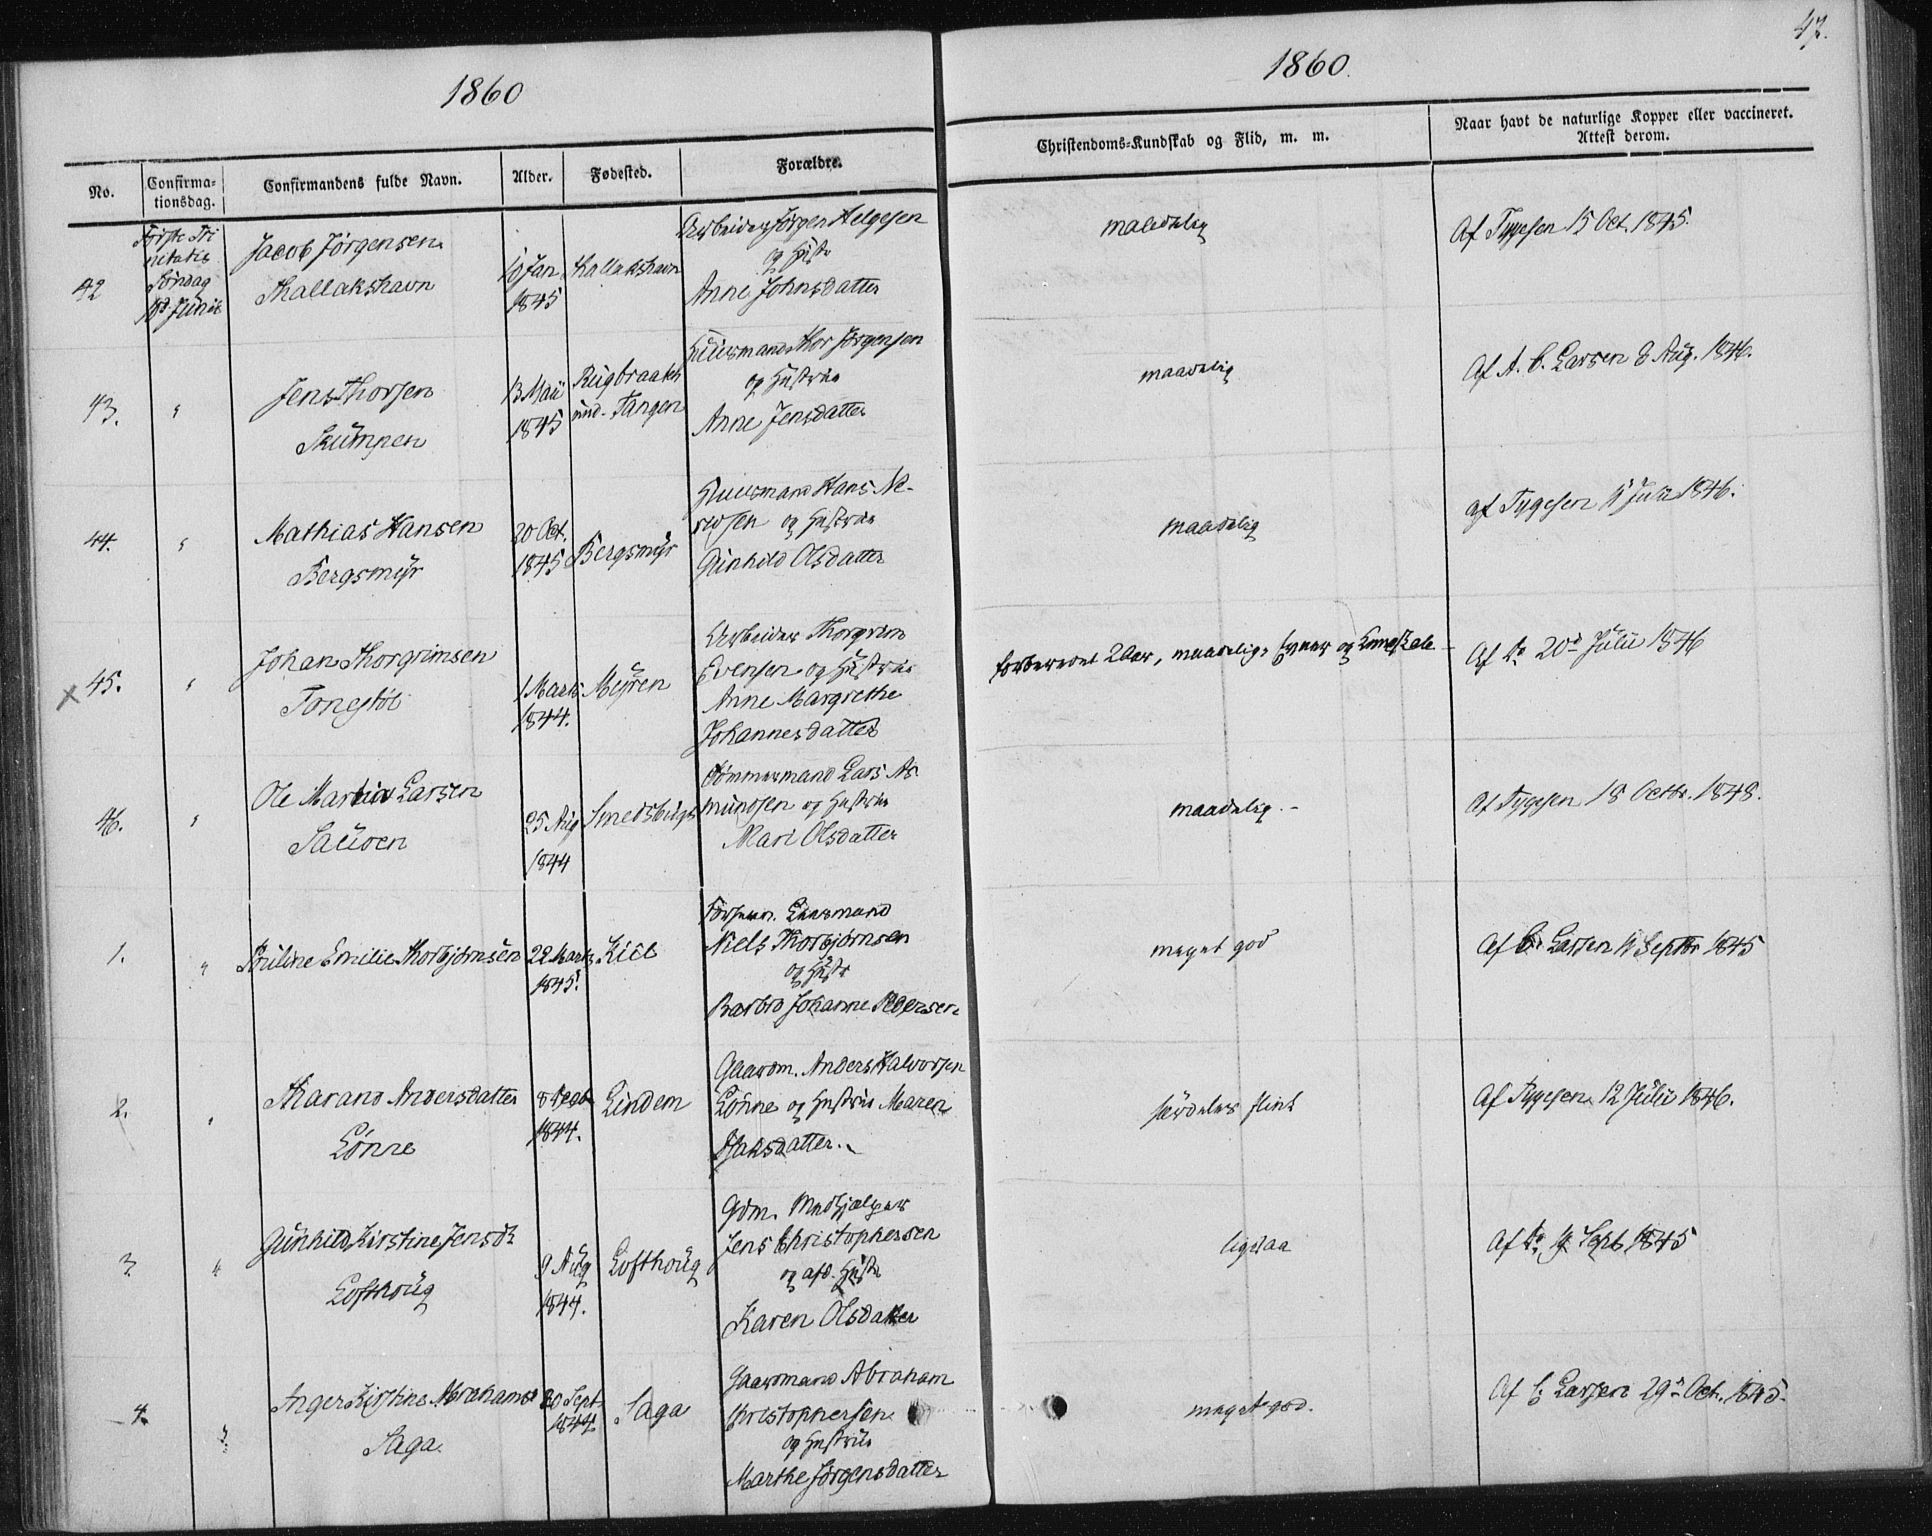 1860
1860.
47.
No.
Confirma-
tionsdag.
Confirmandens fulde Navn.
Alder.
Fødested.
Forældre.
Christendoms-Kundskab og Flid, m. m.
Naar havt de naturlige Kopper eller vaccineret.
Attest derom.
42
Første Tri
nitatis
Søndag
Junii
Jacob Jørgensen
Thallakshavn
Jan
1845
Thallakshavn
Arbeider Jørgen Helgesen
og Hustr
Anne Johnsdatter
maadelig
Af Tygesen 15 Oct. 1845.
43.
"
Jens Thorsen
Skumpen
13 Mai
1845
Tangen
Huusmand Thor Jørgensen
og Hustrue
Anne Jensdatter
maadelig
Af A. C. Larsen 8 Aug. 1846.
44.
"
Mathias Hansen
Bergsmyr
20 Oct.
1845
Bergsmyr
Huusmand Hans
og Hustrue
Gunhild Olsdatter
maadelig
af Tygesen Juli 1846.
x 45.
"
Johan Thorgrimsen
1 Marts
1844.
Myren
Arbeider Thorgrim
Evensen og Hustrue
Anne Margrethe
Johannesdatter
forberedet 2 Aar, maadelige Evner og Kundskab
Af do 20d Julii 1846
46.
"
Ole Martin Larsen
25 Aug
1844
Tømmermand Lars As
mundsen og Hustrue
Mari Olsdatter
maadelig. -
Af Tygesen 18 Octbr. 1848.
1.
"
Pauline Emilie Thorbjørnsen
22 Marts
1845.
Kiil
Niels Thorbjørnsen
og Hustr
Barbro Johanne Pedersen
meget god
Af C. Larsen 11 Septbr 1845
2.
"
Andersdatter
Lønne
8
1844.
Lindem
Gaardm. Anders Halvorsen
Lønne og Hustrue Maren
Isaksdatter.
særdeles flink
Af Tygesen 12 Julii 1846.
3.
"
Gunhild Kirstine Jensdr
Lofthoug
9 Aug
1844.
Lofthoug
Gdm. Medhjælper
Jens Christophersen
og afd. Hustr
Karen Olsdatter
ligesaa
Af do Sept 1845
4.
"
Inger Kirstine Abrahamsd
Saga.
20 Sept
1844.
Saga
Gaardmand Abraham
Christophersen
og Hustrue
Marthe Jørgensdatter
meget god.
Af C. Larsen 29d Oct. 1845.